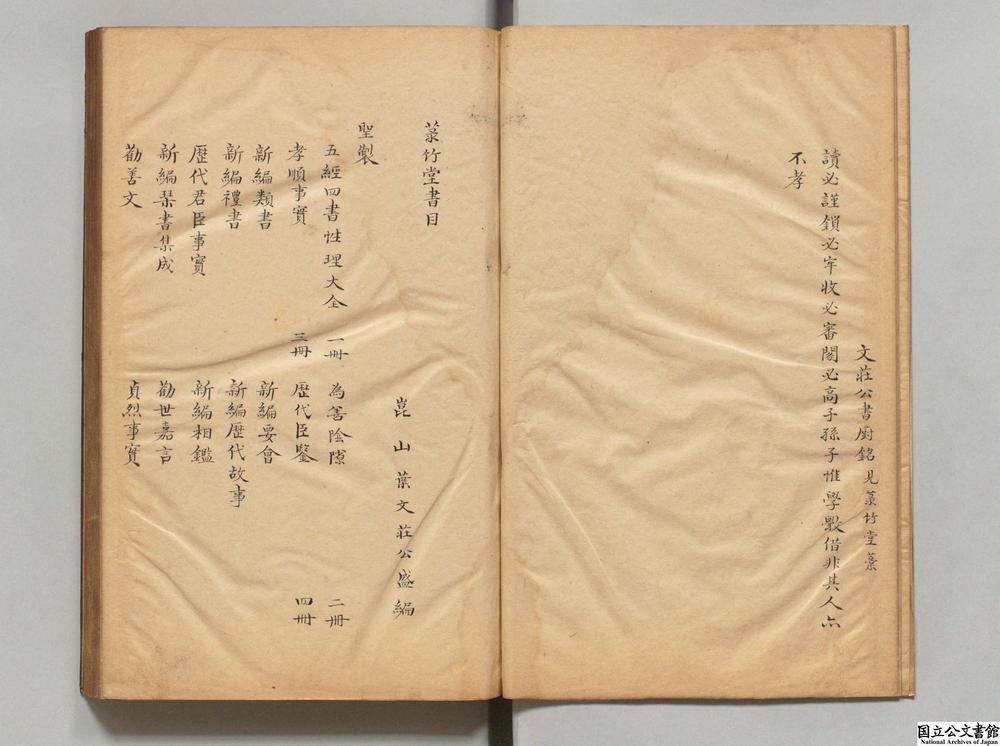 文莊公書廚銘 見菉竹堂藁
讀必謹鎖必牢收必審閣必高子孫子惟學斆借非其人亦
不孝
菉竹堂書目
崑山葉文莊公盛編
聖製
五經四書性理大全 一冊 為善陰隲 二冊
孝順事實 三冊 歷代臣鑒 四冊
新編類書 新編要會
新編禮書 新編歷代故事
歷代君臣事實 新編相鑑
新編琹書集成 勸世嘉言
勸善文 貞烈事實
国立公文書館
National Archives of Japan